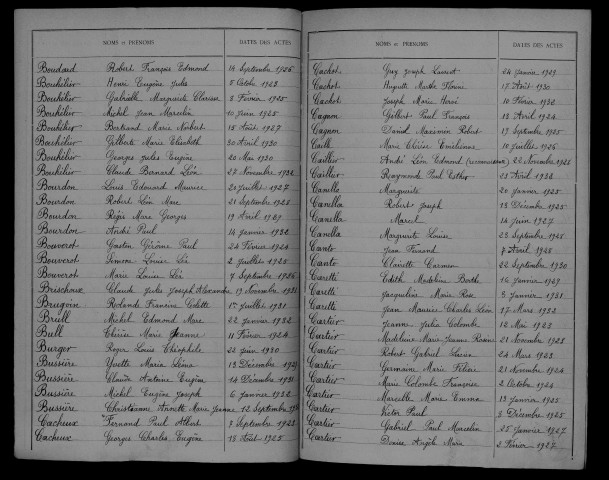 NOMS et PRÉNOMS DATES DES ACTES
Boudard Robert François Edmond 14 Septembre 1926
Bouhélier Henri Eugène Jules 5 Octobre 1923
Bouhélier Gabrielle Marguerite Clarisse 3 Février 1925
Bouhélier Michel Jean Marcelin 10 Juin 1925
Bouhélier Bertrand Marie Norbert 15 Août 1927
Bouhélier Gilberte Marie Elisabeth 30 Avril 1930
Bouhélier Georges Jules Eugène 20 Mai 1930
Bouhélier Claude Bernard Léon 27 Novembre 1932
Bourdon Louis Edouard Maurice 20 Juillet 1927
Bourdon Robert Léon Marc 21 Septembre 1928
Bourdon Régis Marc Georges 19 Avril 1929
Bourdon André Paul 14 Janvier 1932
Bouverot Gaston Jérôme Paul 24 Février 1924
Bouverot Simone Louise 2 Juillet 1925
Bouverot Marie Louise 7 Septembre 1926
Brischoux Claude Jules Joseph Alexandre 19 Novembre 1931
Brugoin Rolande Francine Colette 1er Juillet 1931
Brull Michel Edmond Marc 22 Janvier 1932
Bull Thérèse Marie Jeanne 11 Février 1924
Burger Roger Louis Théophile 22 Juin 1930
Bussière Yvette Marie Léona 13 Décembre 1929
Bussière Claude Antoine Eugène 14 Décembre 1931
Bussière Michel Eugène Joseph 6 Janvier 1932
Bussière Christianne Annette Marie Jeanne 12 Septembre
Cacheux Fernand Paul Albert 3 Septembre 1923
Cacheux Georges Charles Eugène 18 Août 1925
NOMS et PRÉNOMS DATES DES ACTES
Cachot Guy Joseph Laurent 24 Janvier 1929
Cachot Huguette Marthe 17 Août 1930
Cachot Joseph Marie Henri 10 Février 1932
Cagnon Gilbert Paul François 18 Avril 1924
Cagnon Daniel Maximin Robert 19 Septembre 1925
Caille Marie Thérèse Emilienne 10 Juillet 1926
Caillier André Léon Edmond (reconnaissance) 22 Novembre 1928
Caillier Raymonde Paul Esther 23 Avril 1932
Canella Marguerite 20 Janvier 1925
Canella Robert Joseph 18 Décembre 1925
Canella Marcel 14 Juin 1927
Canella Marguerite Louise 23 Septembre 1925
Canto Jean Fernand 7 Avril 1928
Canto Clairette Carmen 22 Septembre 1930
Caretti Edith Madeleine Berthe 16 Janvier 1929
Caretti Jacqueline Marie Rose 5 Janvier 1931
Caretti Jean Maurice Charles Léon 17 Mars 1932
Cartier Jeanne Julia Colombe 12 Mai 1923
Cartier Madeleine Marie Jeanne 21 Novembre 1923
Cartier Robert Gabriel 24 Mars 1923
Cartier Germaine Marie 21 Novembre 1924
Cartier Marie Colombe Françoise 2 Octobre 1924
Cartier Marcelle Marie Emma 13 Janvier 1925
Cartier Victor Paul 5 Décembre 1925
Cartier Gabriel Paul Marcelin 25 Janvier 1927
Cartier Denise Angèle Marie 2 Février 1927